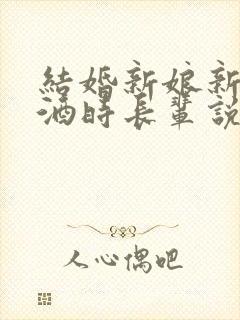 結婚新娘新
酒時長輩說
人心偶吧